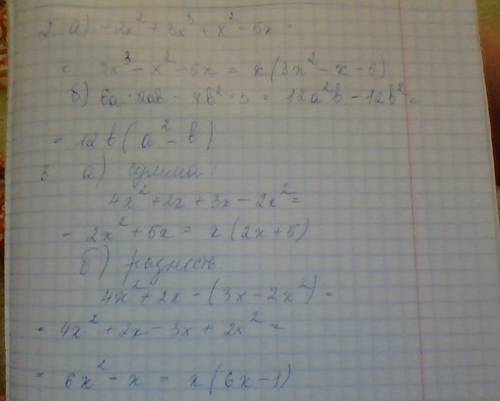 2. а) -2x² + 3x³ + x² - 5x =
= 3x³ - x² - 5x = x(3x² - x - 5)
б) 6a · 2ab - 4b² · 3 = 12a²b - 12b² =
= 12b(a² - b)
3 а) сумма:
4x² + 2x + 3x - 2x² =
= 2x² + 5x = x(2x + 5)
б) разность
4x² + 2x - (3x - 2x²) =
= 4x² + 2x - 3x + 2x² =
= 6x² - x = x(6x - 1)